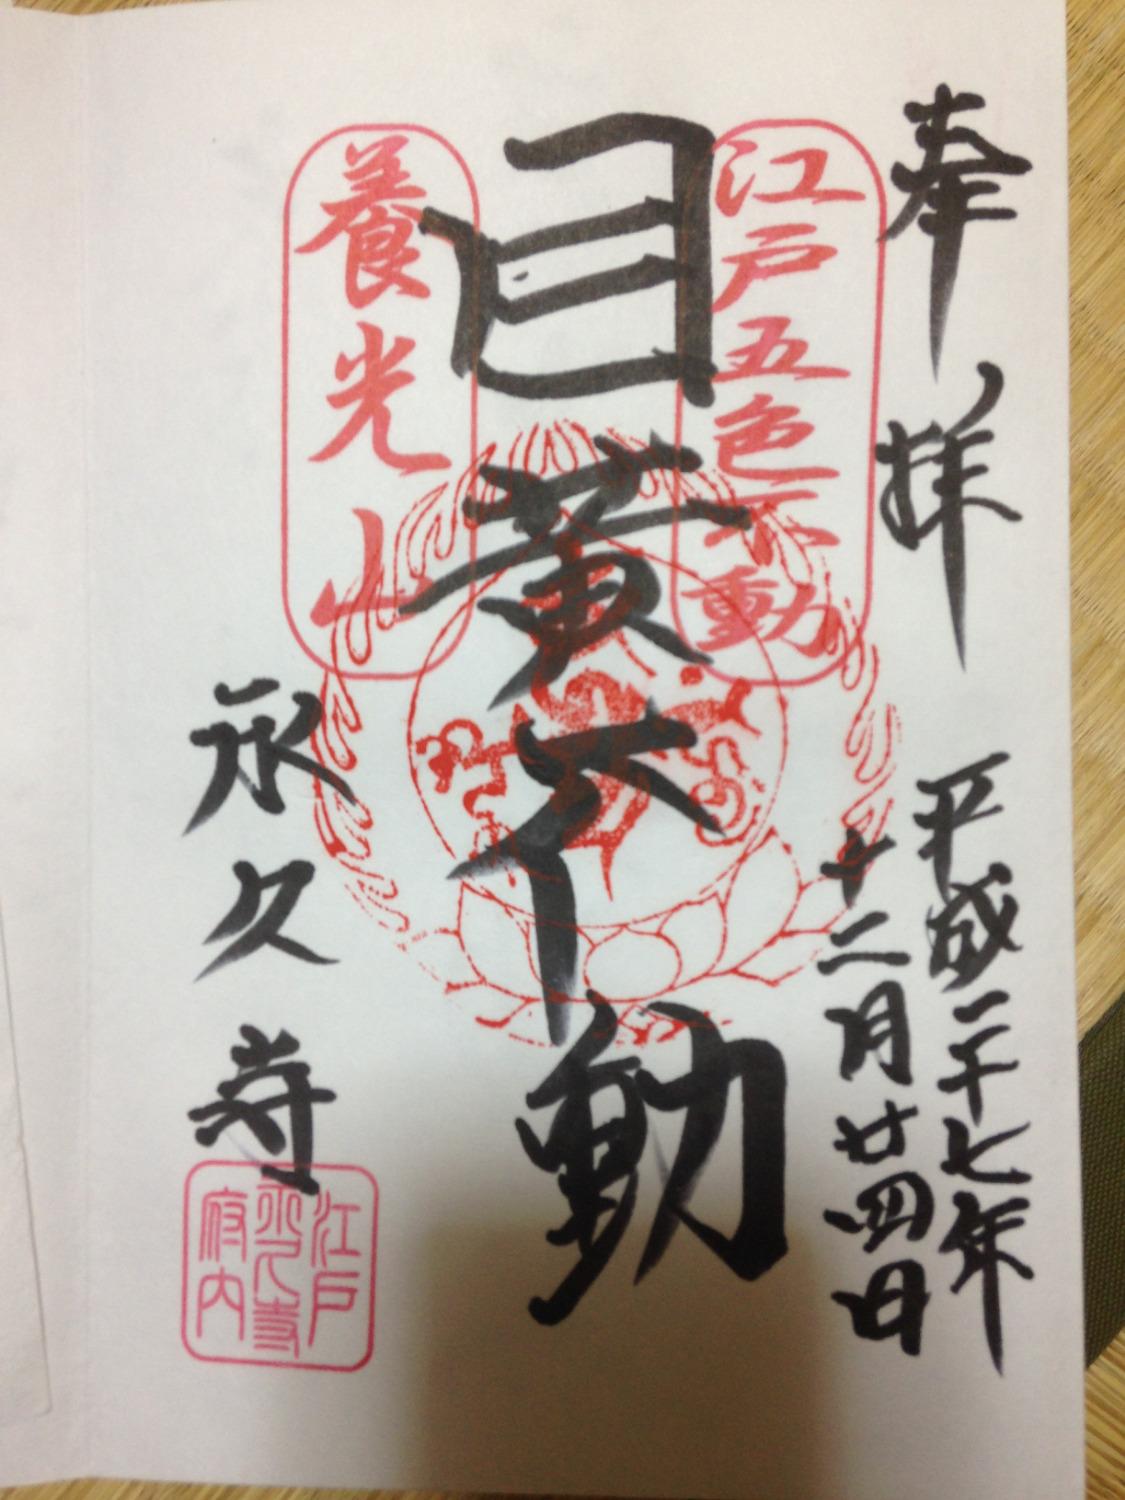 奉拝
平成二十七年
十二月廿四日
江戸五色不動
目黄不動
養光山
永久寺
江戸
永久寺
府内